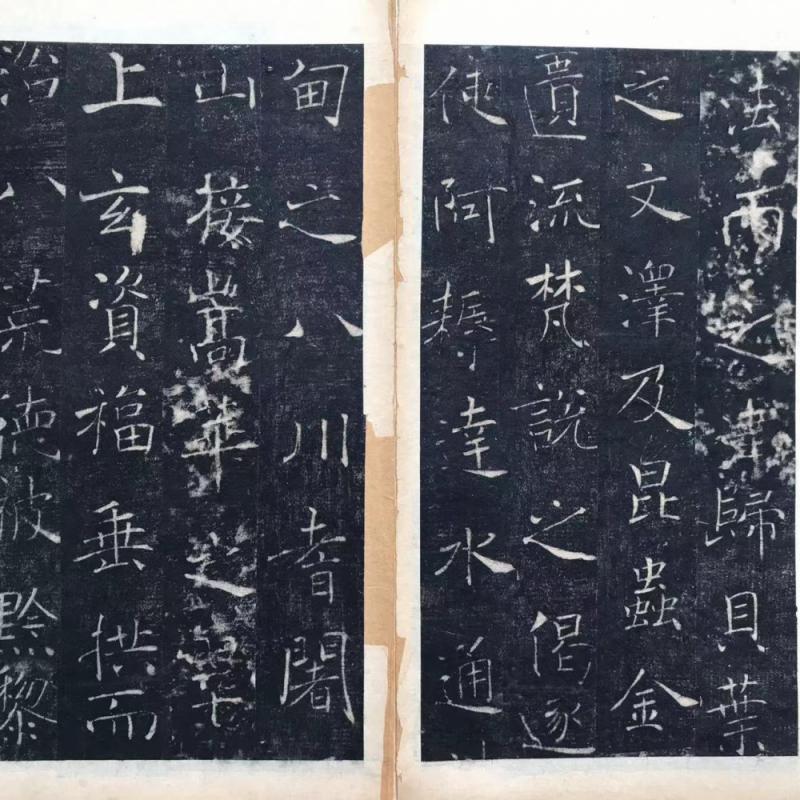 法雨之歸貝葉
之文澤及昆蟲金
匱流梵說之偈遂
使阿耨達水通
甸之八川耆闍
山接嵩華之翠
上玄資福垂拱而
治八荒德被黔黎